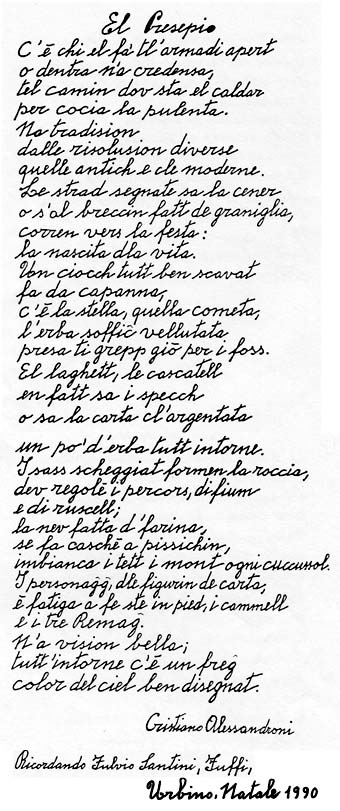 El Presepio
C'ē chi el fà tl'armadi apert
o dentra n'a credensa,
tel camin dov sta el caldar
per cocia la pulenta.
Na tradision
dalle risolusion diverse
quelle antich e cle moderne.
Le strad segnate sa la cener
o s'al breccin fatt de graniglia,
corren vers la festa:
la nascita dla vita.
Von ciocch tutt ben scavat
fa da capanna,
c'ē la stella, quella cometa,
l'erba soffic̄ vellutata
presa ti grepp giō per i foss.
El laghett, le cascatell
en fatt sa i specch
o sa la carta cl'argentata
un po' d'erba tutt intorne.
I sass scheggiat formen la roccia,
dev regolē i percors, di fium
e di ruscell;
la nev fatta d'farina,
se fa caschē a pissichin,
imbianca i tett i mont ogni cuccunsol.
I personaḡḡ, dle figurin de carta,
ē fatiga a fe ste in pied, i cammell
e i tre Remaḡ.
N'a vision bella;
tutt'intorne c'ē un freḡ
color del ciel ben disegnat.
Cristiano Alessandroni
Ricordando Fulvio Santini, Fuffi,
Urbino, Natale 1990